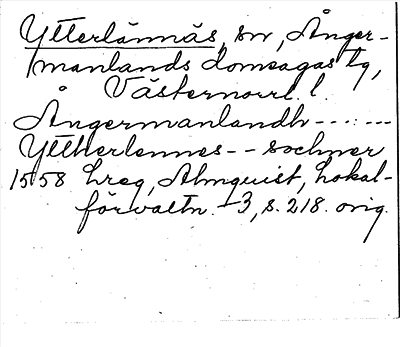 Ytterlännäs, sn, Ånger-
manlands domsagas tg,
Västernorrl. l.
Ångermanlandh ---:---
Yttherlennes -- sochner
1558 hreg, Almquist, Lokal-
förvaltn. 3, s. 218. orig.